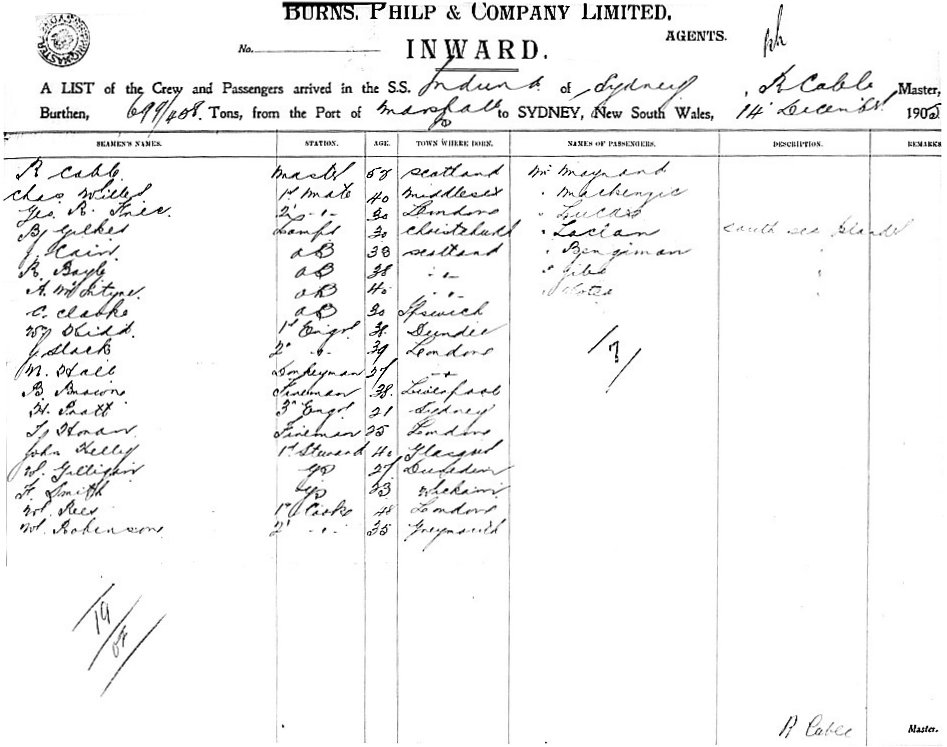 BURNS, PHILP & COMPANY LIMITED,
AGENTS.
No.
INWARD.
A LIST of the Crew and Passengers arrived in the S.S. of Sydney, R Cable Master,
Burthen, 699/408 Tons, from the Port of Marshall to SYDNEY, New South Wales, 14 December 1905
SEAMEN'S NAMES. STATION. AGE. TOWN WHERE BORN. NAMES OF PASSENGERS. DESCRIPTION. REMARKS
R Cable Master 52 Scotland Mr Maynard
Chas 1st Mate 40 Middlesex " Mackenzie
Geo. R. 2d " 30 London " Lucas
B. Gilkes Lamps 30 Christchurch " south sea Islander
J. Cain AB 33 Scotland " Bengiman "
R. Boyle AB 38 " "
A. McIntyre AB 40 " "
C. Clarke AB 30 Ipswich
Kidd 1st Engr 38 Dundee
J Slack 2d " 39 London
M. Hall Donkeyman 27 "
B. Brown Fireman 38 Liverpool
H. Pratt 3rd Engr 21 Sydney
Horan Fireman 25 London
John Kelly 1st Steward 40 Glasgow
W. Gilligan 27 Dunedin
F. Smith 23
W. Rees 1st Cooke 48 London
W. Robinson 2d " 35 Greymouth
7
19
R Cable Master.